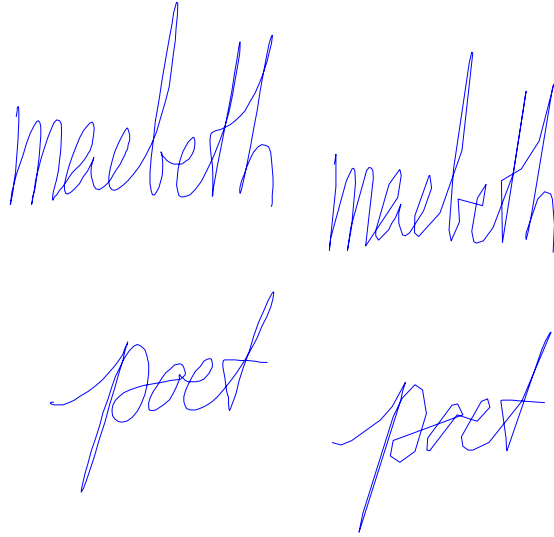 macbeth macbeth
poet poet